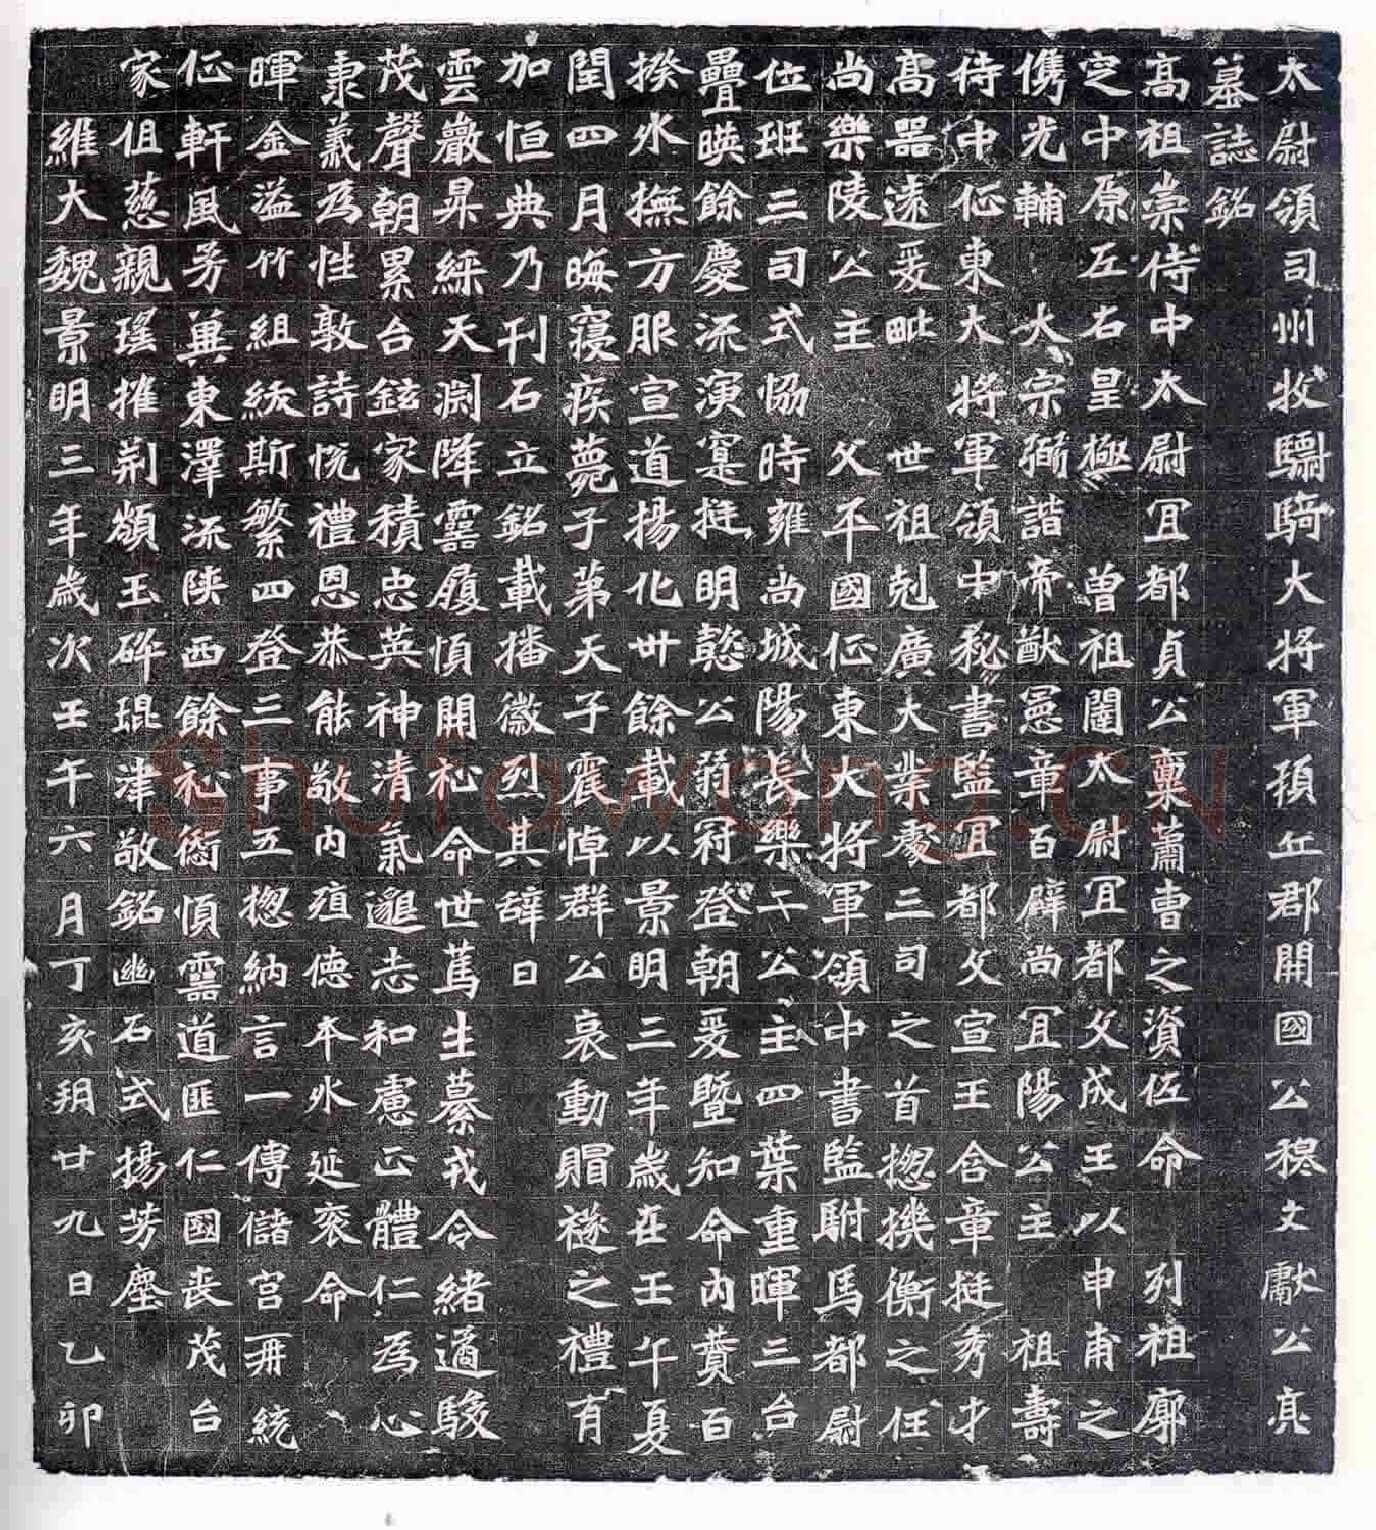 太尉領司州牧驃騎大將軍頓丘郡開國公穆文獻公亮
墓誌銘
高祖崇侍中太尉冝都貞公稟蕭曺之資佐命列祖廓
定中原左右皇極曾祖闥太尉冝都文成王以申甫之
儁光輔大宗弼諧帝猷憲章百辟尚冝陽公主祖壽
侍中征東大將軍領中秘書監冝都文宣王含章挺秀才
高器遠爰毗世祖剋廣大業處三司之首揔機衡之任
尚樂陵公主父平國征東大將軍領中書監駙馬都尉
位班三司式協時雍尚城陽長樂二公主四葉重暉三台
疊暎餘慶流演寔挺明懿公弱冠登朝爰暨知命內賛百
揆外撫方服宣道揚化卅餘載以景明三年歲在壬午夏
閏四月晦寢疾薨于第天子震悼群公哀動賵襚之禮有
加恒典乃刊石立銘載播徽烈其辭曰
雲巖昇綵天淵降靈履順開祉命世篤生纂戎令緒遹駿
茂聲朝累台鉉家積忠英神清氣邈志和慮正體仁為心
秉義為性敦詩悅禮恩恭能敬內殖德本外延袞命
暉金溢竹組綬斯繁四登三事五揔納言一傅儲宮再統
征軒風芳冀東澤流陝西餘祉衡順靈道匪仁國喪茂台
家徂慈親瑤摧荊頹玉碎琨津敬銘幽石式揚芳塵
維大魏景明三年歲次壬午六月丁亥朔廿九日乙卯
Shufawang.CN